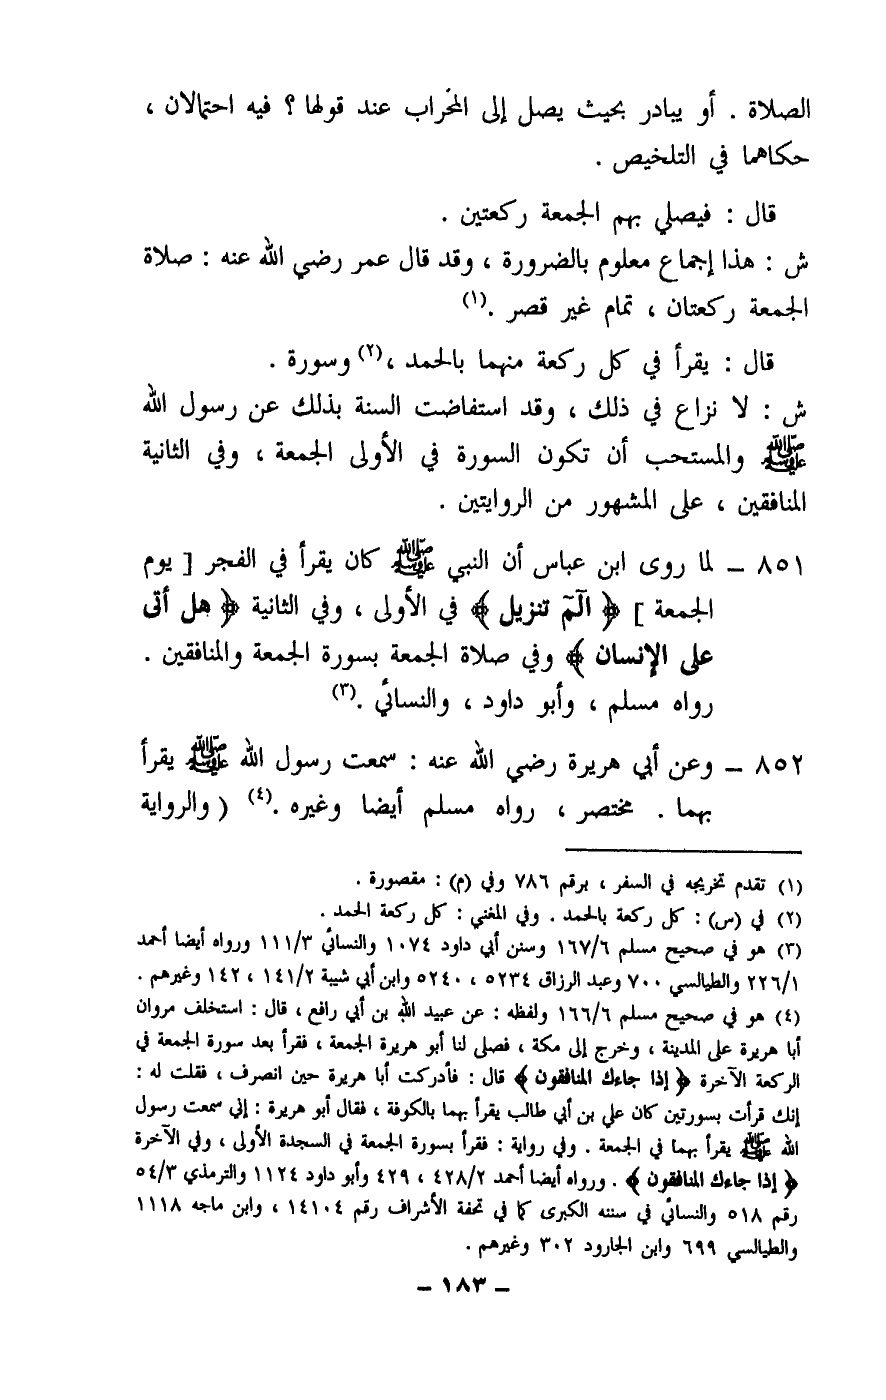 الصلاة . أو يبادر بحيث يصل إلى المحراب عند قولها ؟ فيه احتمالان ،
حكاهما في التلخيص .
قال : فيصلي بهم الجمعة ركعتين .
ش : هذا إجماع معلوم بالضرورة ، وقد قال عمر رضي الله عنه : صلاة
الجمعة ركعتان ، تمام غير قصر .(١)
قال : يقرأ في كل ركعة منهما بالحمد ،(٢) وسورة .
ش : لا نزاع في ذلك ، وقد استفاضت السنة بذلك عن رسول الله
ﷺ والمستحب أن تكون السورة في الأولى الجمعة ، وفي الثانية
المنافقين ، على المشهور من الروايتين .
٨٥١ ـ لما روى ابن عباس أن النبي ﷺ كان يقرأ في الفجر [ يوم
الجمعة ] ﴿ الٓمٓ تنزيل ﴾ في الأولى ، وفي الثانية ﴿ هل أتى
على الإنسان ﴾ وفي صلاة الجمعة بسورة الجمعة والمنافقين .
رواه مسلم ، وأبو داود ، والنسائي .(٣)
٨٥٢ ـ وعن أبي هريرة رضي الله عنه : سمعت رسول الله ﷺ يقرأ
بهما . مختصر ، رواه مسلم أيضا وغيره .(٤) ( والرواية
(١) تقدم تخريجه في السفر ، برقم ٧٨٦ وفي (م) : مقصورة .
(٢) في (س) : كل ركعة بالحمد . وفي المغني : كل ركعة الحمد .
(٣) هو في صحيح مسلم ١٦٧/٦ وسنن أبي داود ١٠٧٤ والنسائي ١١١/٣ ورواه أيضا أحمد
٢٢٦/١ والطيالسي ٧٠٠ وعبد الرزاق ٥٢٣٤ ، ٥٢٤٠ وابن أبي شيبة ١٤١/٢ ، ١٤٢ وغيرهم .
(٤) هو في صحيح مسلم ١٦٦/٦ ولفظه : عن عبيد الله بن أبي رافع ، قال : استخلف مروان
أبا هريرة على المدينة ، وخرج إلى مكة ، فصلى لنا أبو هريرة الجمعة ، فقرأ بعد سورة الجمعة في
الركعة الآخرة ﴿ إذا جاءك المنافقون ﴾ قال : فأدركت أبا هريرة حين انصرف ، فقلت له :
إنك قرأت بسورتين كان علي بن أبي طالب يقرأ بهما بالكوفة ، فقال أبو هريرة : إني سمعت رسول
الله ﷺ يقرأ بهما في الجمعة . وفي رواية : فقرأ بسورة الجمعة في السجدة الأولى ، وفي الآخرة
﴿ إذا جاءك المنافقون ﴾ . ورواه أيضا أحمد ٤٢٨/٢ ، ٤٢٩ وأبو داود ١١٢٤ والترمذي ٥٤/٣
رقم ٥١٨ والنسائي في سننه الكبرى كما في تحفة الأشراف رقم ١٤١٠٤ ، وابن ماجه ١١١٨
والطيالسي ٦٩٩ وابن الجارود ٣٠٢ وغيرهم .
ـ ١٨٣ ـ